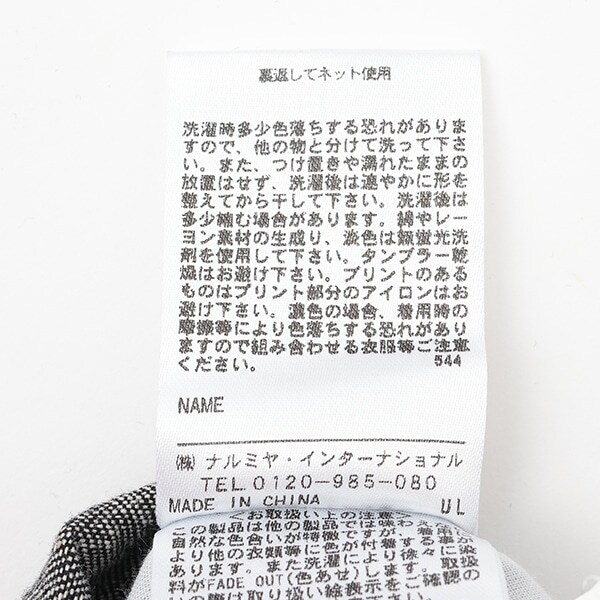 裏返してネット使用
洗濯時多少色落ちする恐れがありま
すので、他の物と分けて洗って下さ
い。また、つけ置きや濡れたままの
放置はせず、洗濯後は速やかに形を
整えてから干して下さい。洗濯後は
多少縮む場合があります。綿やレー
ヨン素材の生成り、淡色は無蛍光洗
剤を使用して下さい。タンブラー乾
燥はお避け下さい。プリントのある
ものはプリント部分のアイロンはお
避け下さい。濃色の場合、着用時の
摩擦等により色落ちする恐れがあり
ますので組み合わせる衣服等ご注意
ください。 544
NAME
(株) ナルミヤ・インターナショナル
TEL.0120-985-080
MADE IN CHINA UL
お取扱い上の注意
この製品は他の製品では味わえ
自然な色合いが特徴ですが着用
より他の衣類等に色が付着する事
あります。また洗濯により徐々
料がFADE OUT(色あせ)します。
の際は取り扱い絵表示をご確認の